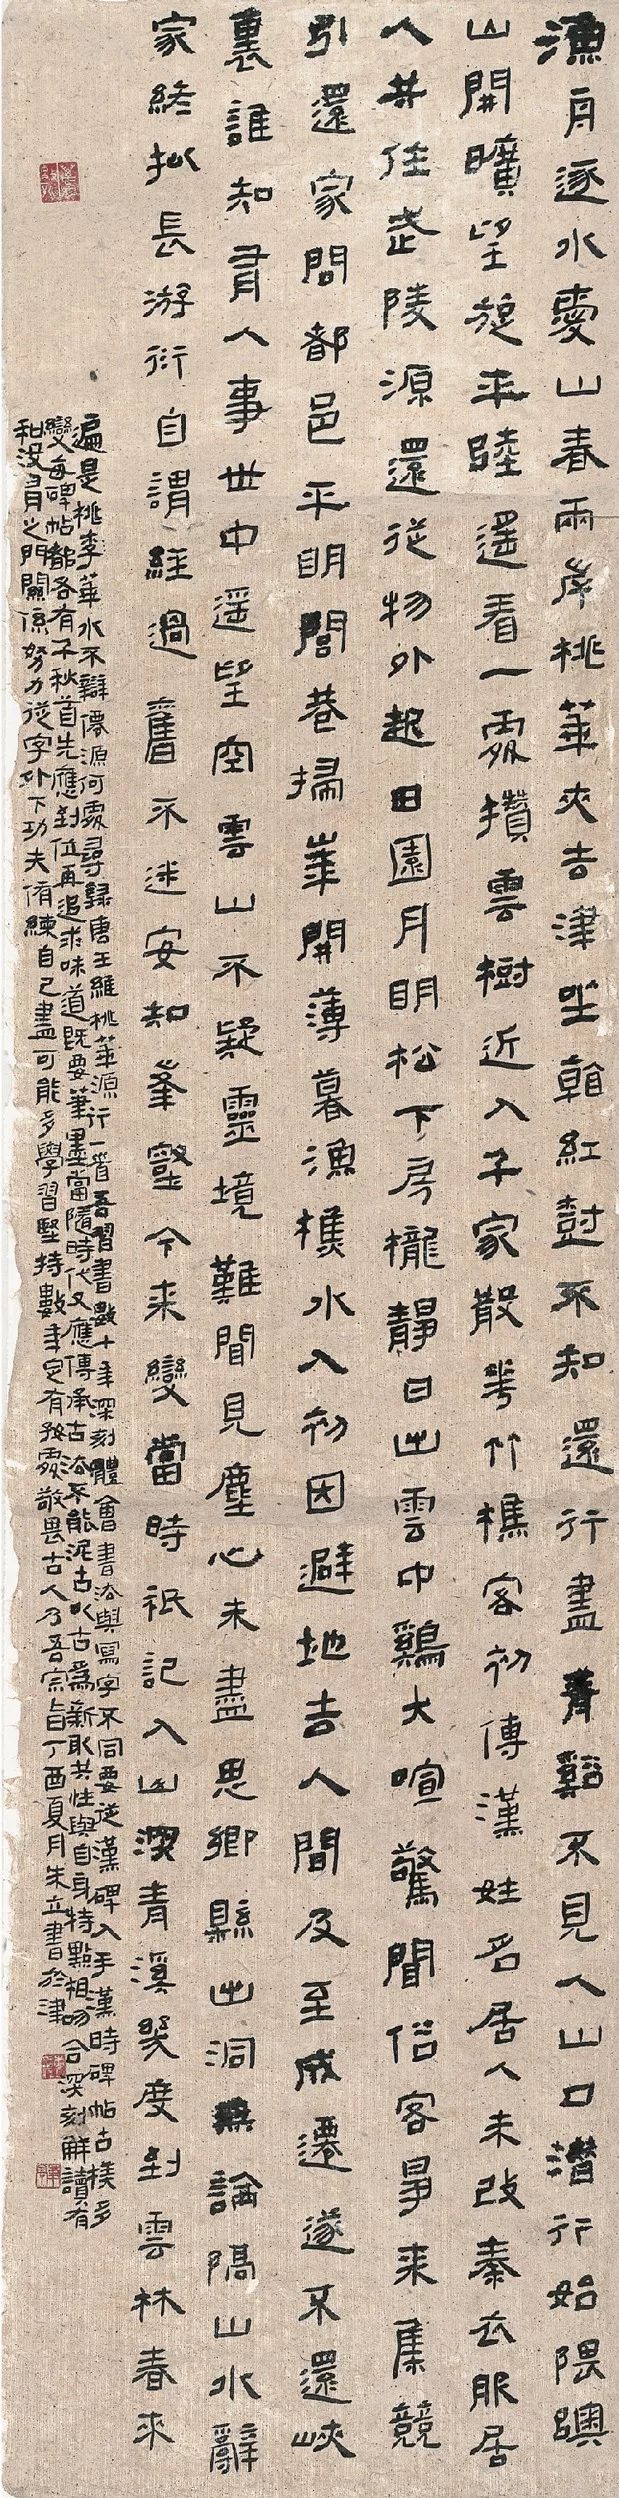 漁舟逐水愛山春兩岸桃華夾去津坐看紅樹不知還行盡青谿不見人山口潛行始隈隩
山開曠望旋平陸遙看一處攢雲樹近入千家散花竹樵客初傳漢姓名居人未改秦衣服居
人共住武陵源還從物外起田園月明松下房櫳靜日出雲中鷄犬喧驚聞俗客爭来集競
引還家問都邑平明閭巷掃華開薄暮漁樵水入初因避地去人間及至成遷遂不還峽
裏誰知有人事世中遥望空雲山不疑靈境難聞見塵心未盡思鄉縣出洞無論隔山水辭
家終擬長游衍自謂經過舊不迷安知峯壑今来變當時祇記入山深青溪幾度到雲林春来
遍是桃李華水不辯僊源何處尋錄唐王維桃華源行一首吾習書數十年深刻體會書法與寫字不同要從漢碑入手漢時碑帖古樸多
變每碑帖都各有千秋首先應到位再追求味道既要筆墨當隨時代又應傳承古法不能泥古以古爲新取共性與自身特點相吻合深刻解讀有
和沒有之門關係努力從字外下功夫脩練自己盡可能多學習堅持數年定有好處敬畏古人乃吾宗旨丁酉夏月朱立書於津